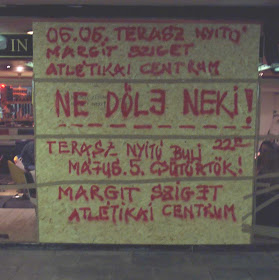 IN
05.05. TERASZ NYITÓ
MARGIT SZIGET
ATLÉTIKAI CENTRUM
NE DŐLJ NEKI!
TERASZ NYITÓ BULI 22h
MÁJUS. 5. CSÜTÖRTÖK!
MARGIT SZIGET
ATLÉTIKAI CENTRUM